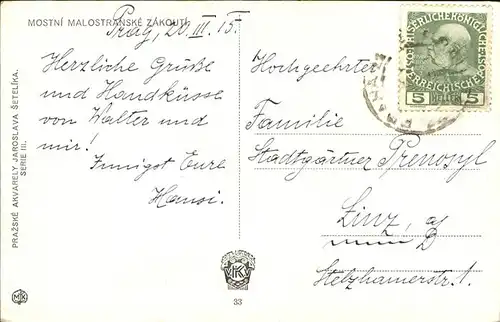 MOSTNÍ MALOSTRANSKÉ ZÁKOUTÍ.
Prag, 20. III. 15.
Herzliche Grüße
und Handküsse
von Walter und
mir!
Innigst Eure
Hansi.
Hochgeehrter
Familie
Stadtgärtner Prenosyl
Linz, a/D
Stelzhamerstr. 1.
5 HELLER 5
PRAŽSKÉ AKVARELY JAROSLAVA ŠETELÍKA.
SERIE III.
VKK
MK
33